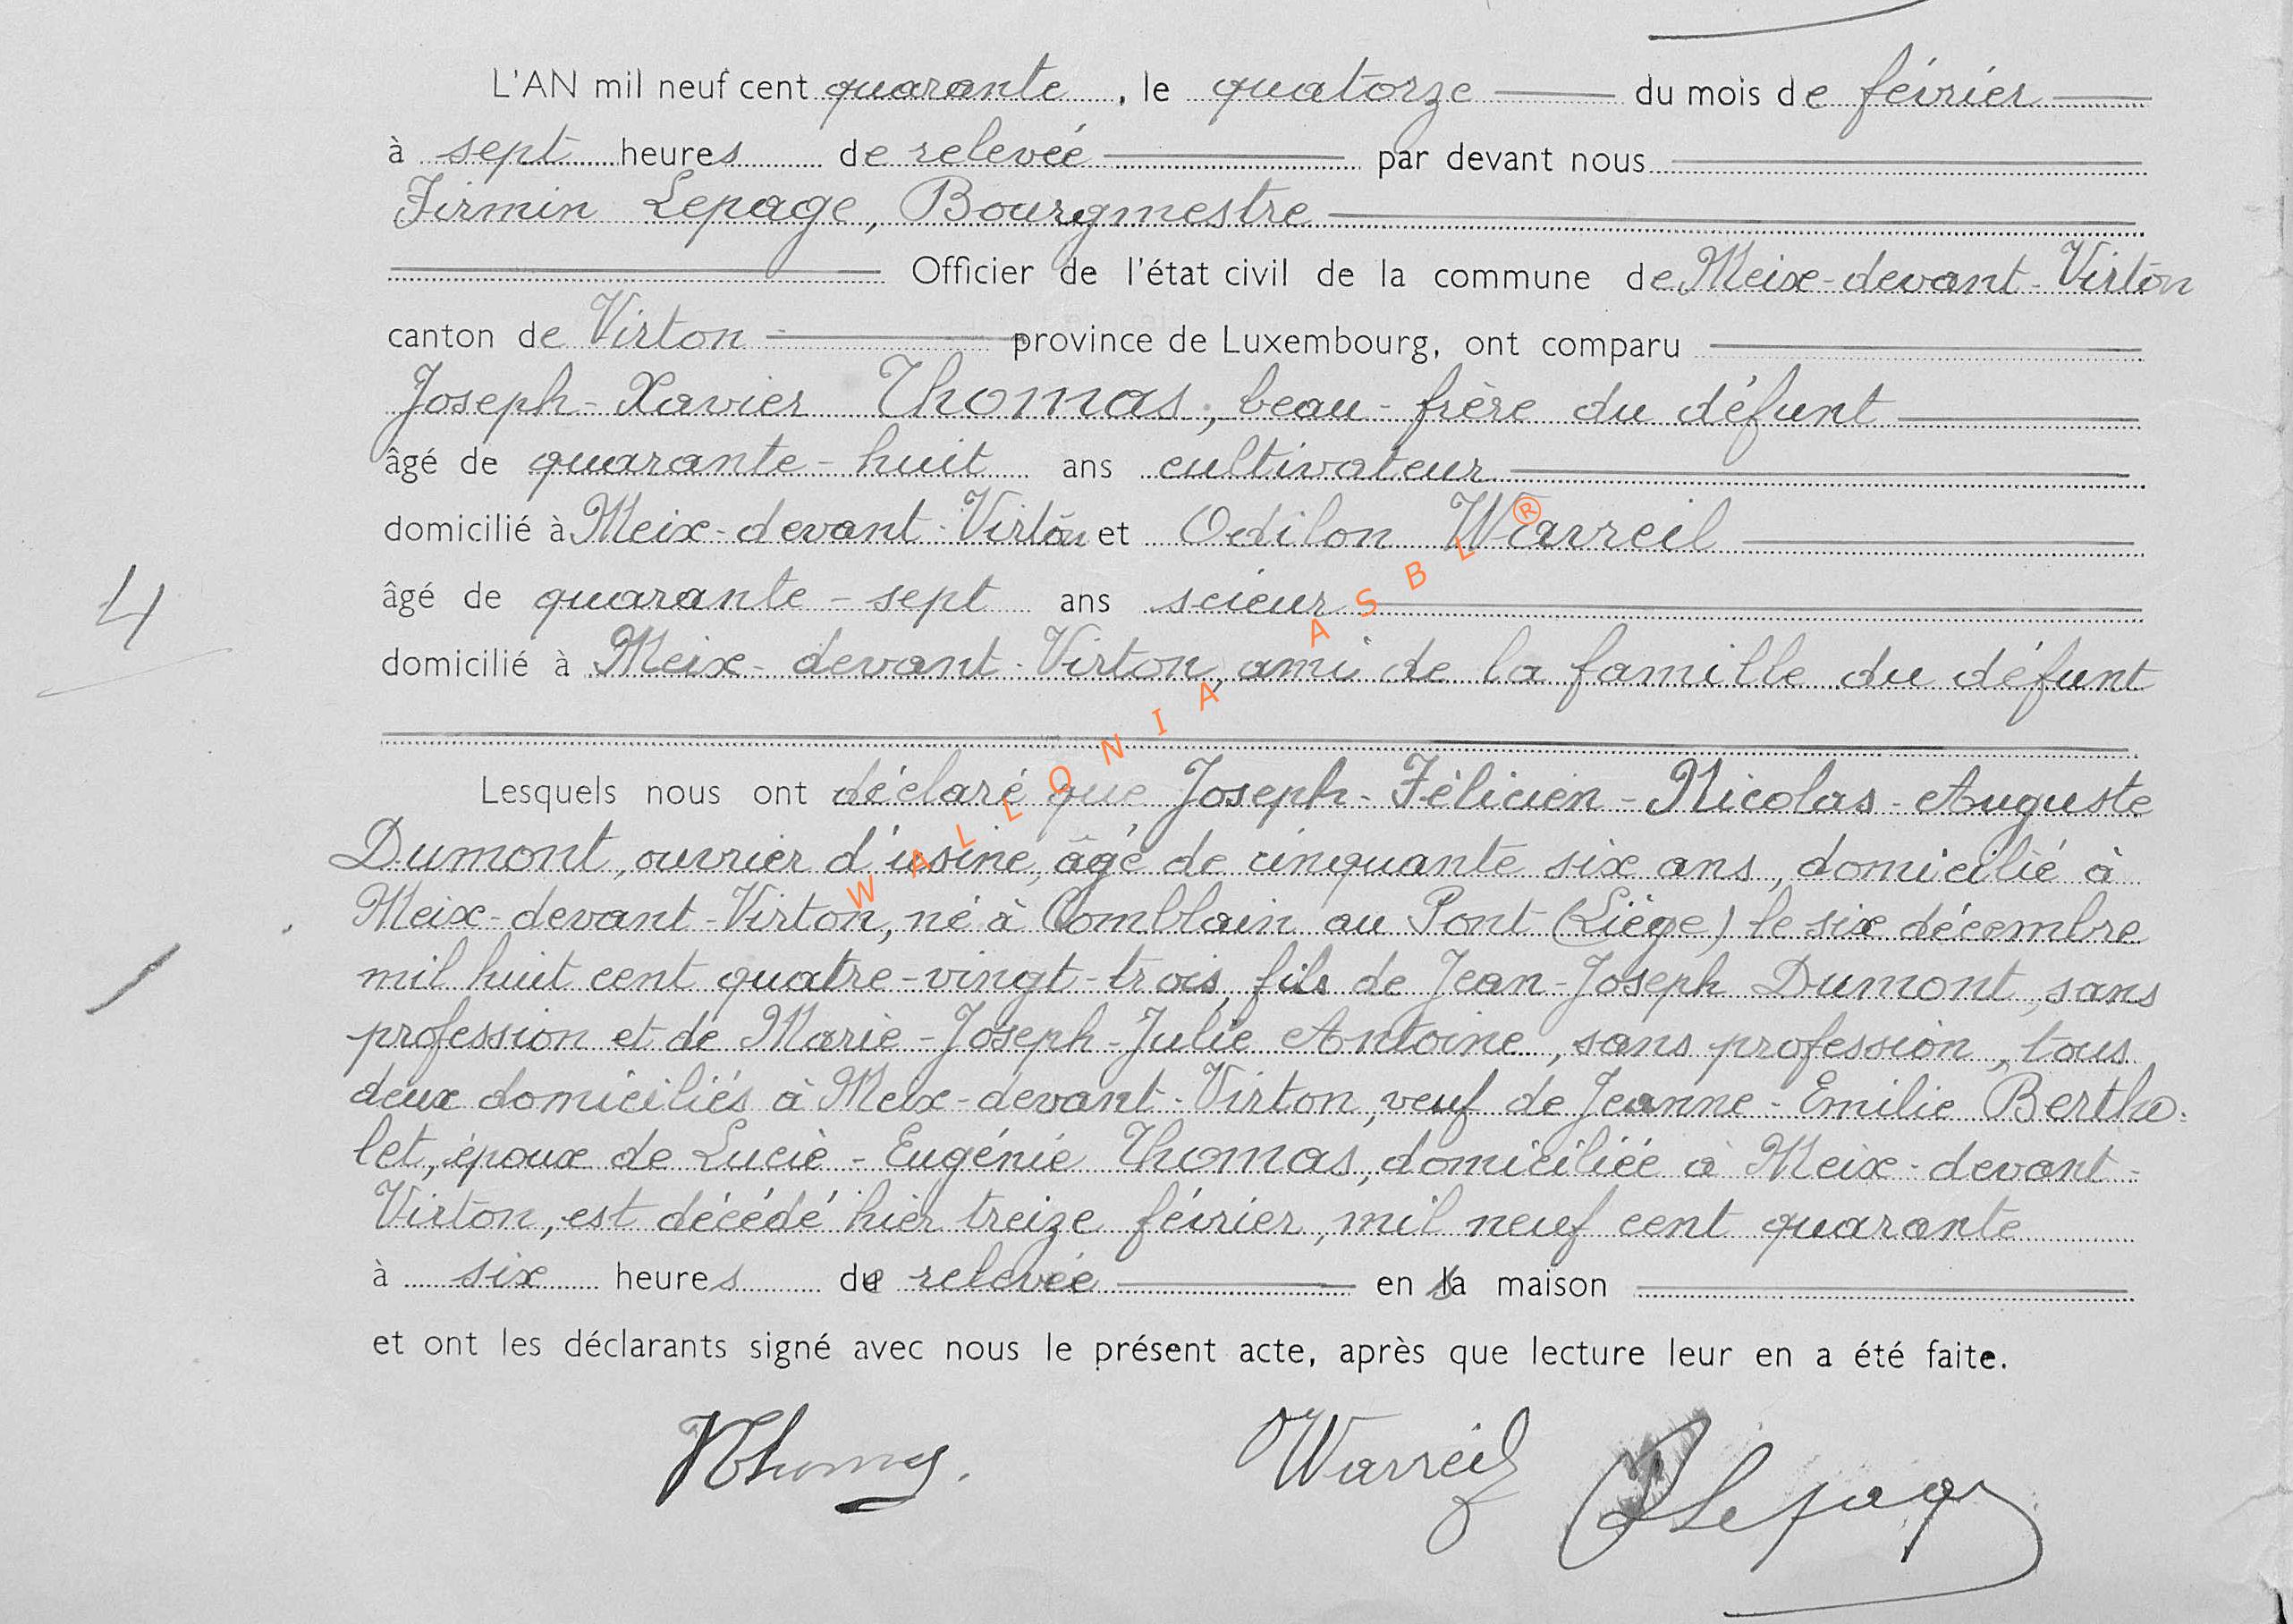 L'AN mil neuf cent quarante, le quatorze du mois de février
à sept heures de relevée par devant nous
Firmin Lepage, Bourgmestre
Officier de l'état civil de la commune de Meix-devant-Virton
canton de Virton province de Luxembourg, ont comparu
Joseph-Xavier Thomas, beau-frère du défunt
âgé de quarante-huit ans cultivateur
domicilié à Meix-devant-Virton et Odilon Warreil
âgé de quarante-sept ans scieur
domicilié à Meix-devant-Virton, ami de la famille du défunt
4
Lesquels nous ont déclaré que Joseph-Félicien-Nicolas-Auguste
Dumont, ouvrier d'usine, âgé de cinquante six ans, domicilié à
Meix-devant-Virton, né à Comblain au Pont (Liège) le six décembre
mil huit cent quatre-vingt-trois, fils de Jean-Joseph Dumont, sans
profession et de Marie-Joseph-Julie Antoine, sans profession, tous
deux domiciliés à Meix-devant-Virton, veuf de Jeanne-Emilie Bertho-
let, époux de Lucie-Eugénie Thomas, domiciliée à Meix-devant-
Virton, est décédé hier treize février, mil neuf cent quarante
à six heures de relevée en sa maison
et ont les déclarants signé avec nous le présent acte, après que lecture leur en a été faite.
Warreil Lepage
WALLONIA ASBL ®